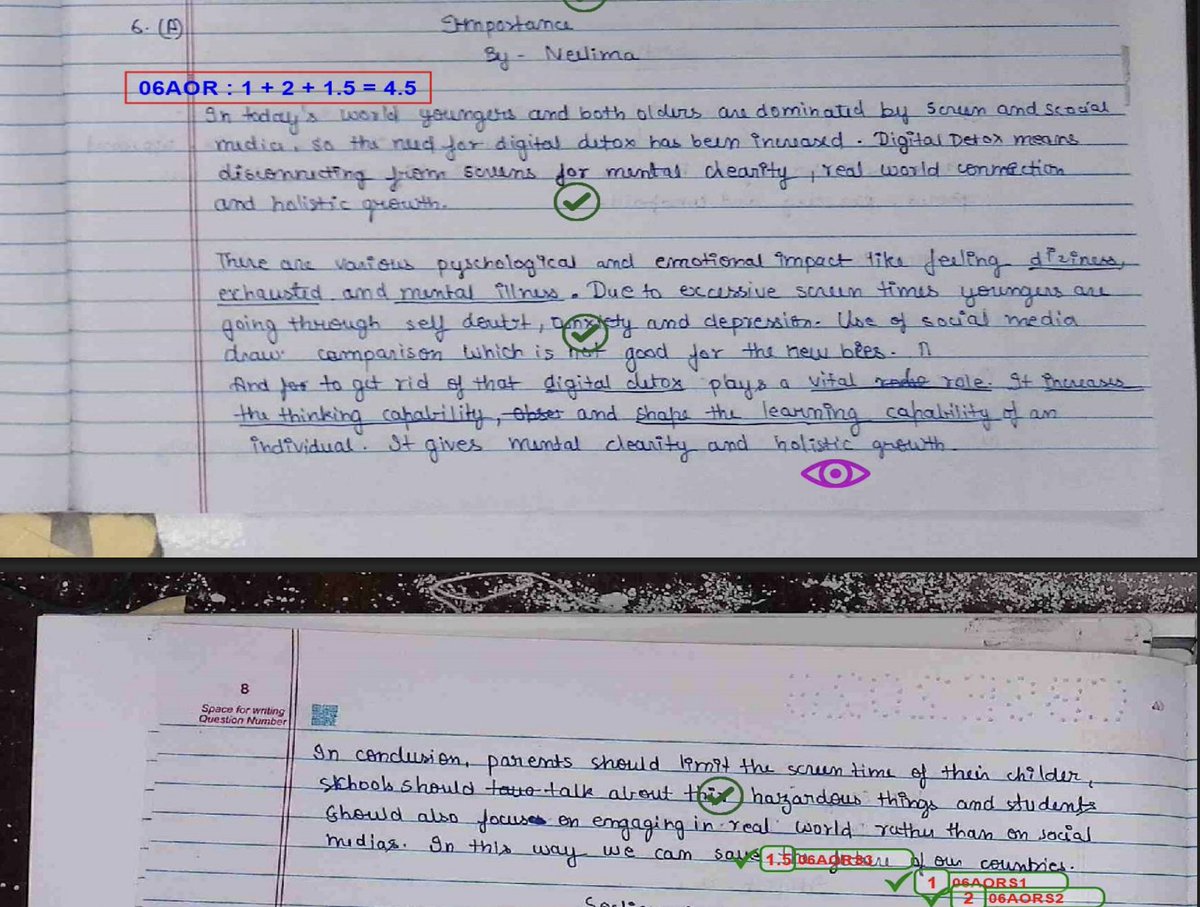 6. (A) Importance
By - Neelima
06AOR : 1 + 2 + 1.5 = 4.5
In today's world youngers and both olders are dominated by screen and scocial
media. so the need for digital detox has been increased. Digital Detox means
disconnecting from screens for mental clearity, real world connection
and holistic growth.
There are various pyschological and emotional impact like feeling diziness,
exhausted and mental illness. Due to excessive screen times youngers are
going through self doubt, anxiety and depression. Use of social media
draw comparison which is not good for the new bies.
And for to get rid of that digital detox plays a vital role. It increases
the thinking capability, and shape the learning capability of an
individual. It gives mental clearity and holistic growth.
8
Space for writing
Question Number
In conclusion, parents should limit the screen time of their childer,
schools should talk about this hazardous things and students
should also focus on engaging in real world rather than on social
medias. In this way we can save the future of our countries.
1.5 06AORS3
1 06AORS1
2 06AORS2